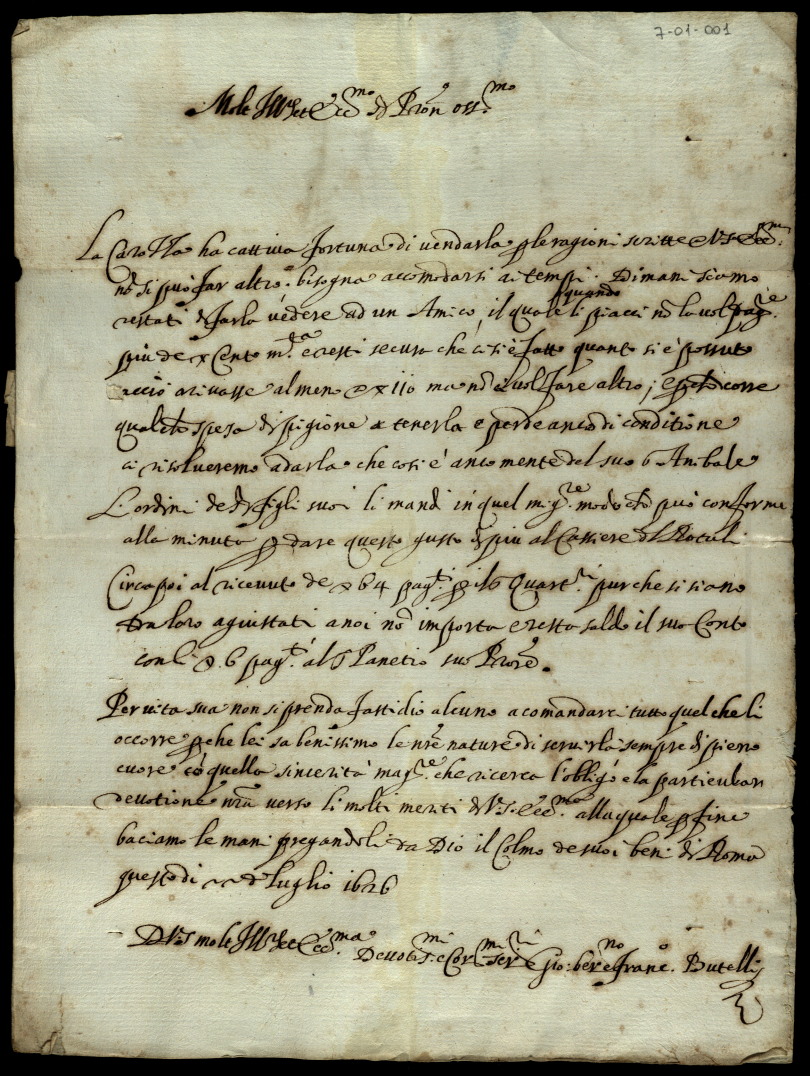 7-01-001
Molt Ill.re et Ecc.mo Sr Pron oss.mo
La Carozza ha cattiva fortuna di vendarla p le ragioni scritte a V.S. Ecc.ma
nō si può far altro bisogna accomodarsi ai tempi. Dimani siamo
restati di farla vedere ad un Amico, il quale quando li piacci nō la vol pag.re
più de Cento m.ta e resti secura che ci si è fatto quanto si è possuto
acciò arivasse almeno a 110 ma nō ci vol fare altro; e perche corre
qualche spesa di pigione a tenerla e perde anco di conditione
ci risolveremo a darla che così è anco mente del suo Sr Anibale
L'ordini de Sri figli suoi li mandi in quel mig.re modo che può conforme
alla minuta p dare questo gusto di più al Cassiere
Circa poi al ricevuto de 64 pag.ti p il Sr Quart. purche si siano
da loro agiustati a noi nō importa e resta saldo il suo Conto
con li 6 pag.ti al Sr Panetio suo Prore.
Per vita sua non si prenda fastidio alcuno a comandarci tutto quel che li
occorre pche lei sa benissimo le nre nature di servirla sempre di pieno
cuore cō quella sincerità mag.re che ricerca l'obligo e la particular
devotione nra verso li molti meriti di V.S. Ecc.ma alla quale p fine
baciamo le mani pregandoli da Dio il Colmo de suoi beni di Roma
questo di luglio 1626
D V.S. molt Ill.re et Ecc.ma
Devotis.mi e Cor.mi Ser.ri Gio: ber.no e Franc.o Butelli